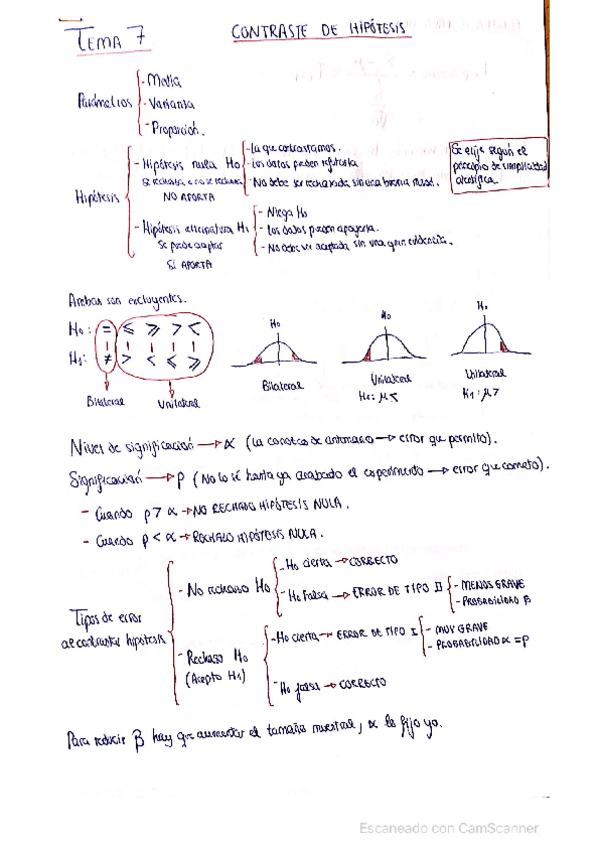 TEMA 7
CONTRASTE DE HIPÓTESIS
Parámetros
- Media
- Varianza
- Proporción.
Hipótesis
- Hipótesis nula H0
Se rechaza o no se rechaza
NO APORTA
- La que contrastamos.
- Los datos pueden refutarla
- No debe ser rechazada sin una buena razón.
Se elije según el
principio de simplicidad
científica.
- Hipótesis alternativa H1
Se puede aceptar
SI APORTA
- Niega H0
- Los datos pueden apoyarla.
- No debe ser aceptada sin una gran evidencia.
Ambas son excluyentes.
H0: = ≤ ≥ > <
H1: ≠ > < ≤ ≥
Bilateral Unilateral
H0
Bilateral
H0
Unilateral
H1: μ <
H0
Unilateral
H1: μ >
Nivel de significación → α (La conozco de antemano → error que permito).
Significación → p (No lo sé hasta ya acabado el experimento → error que cometo).
- Cuando p > α → NO RECHAZO HIPÓTESIS NULA.
- Cuando p < α → RECHAZO HIPÓTESIS NULA.
Tipos de error
al contrastar hipótesis
- No rechazo H0
- H0 cierta → CORRECTO
- H0 falsa → ERROR DE TIPO II
- MENOS GRAVE
- PROBABILIDAD β
- Rechazo H0
(Acepto H1)
- H0 cierta → ERROR DE TIPO I
- MUY GRAVE
- PROBABILIDAD α = p
- H0 falsa → CORRECTO
Para reducir β hay que aumentar el tamaño muestral, α la fijo yo.
Escaneado con CamScanner